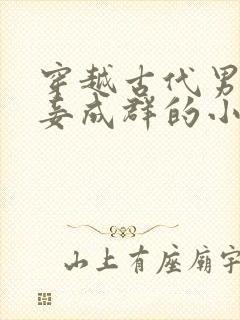 穿越古代男
妾成群的小
山上有座廟宇